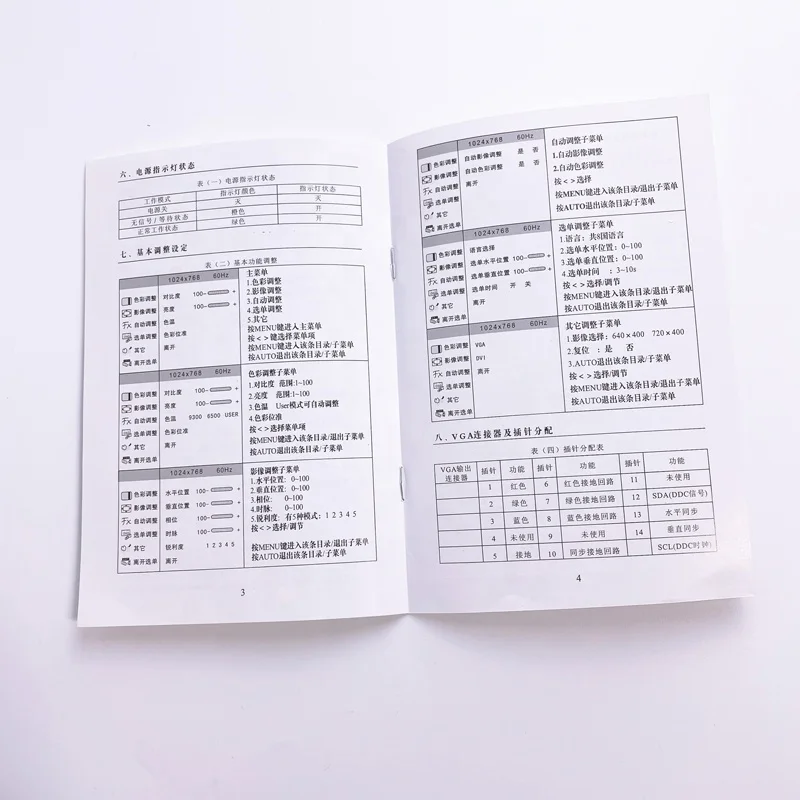 六、电源指示灯状态
表（一）电源指示灯状态
工作模式 指示灯颜色 指示灯状态
电源关 灭 灭
无信号/等待状态 橙色 开
正常工作状态 绿色 开
七、基本调整设定
表（二）基本功能调整
1024x768 60Hz
色彩调整 对比度 100- +
影像调整 亮度 100- +
自动调整 色温
选单调整 色彩位准
其它 离开
离开选单
主菜单
1.色彩调整
2.影像调整
3.自动调整
4.选单调整
5.其它
按MENU键进入主菜单
按<>键选择菜单项
按MENU键进入该条目录/子菜单
按AUTO退出该条目录/子菜单
1024x768 60Hz
色彩调整 对比度 100- +
影像调整 亮度 100- +
自动调整 色温 9300 6500 USER
选单调整 色彩位准
其它 离开
离开选单
色彩调整子菜单
1.对比度 范围:1~100
2.亮度 范围:1~100
3.色温 User模式可自动调整
4.色彩位准
按<>选择菜单项
按MENU键进入该条目录/退出子菜单
按AUTO退出该条目录/子菜单
1024x768 60Hz
色彩调整 水平位置 100- +
影像调整 垂直位置 100- +
自动调整 相位 100- +
选单调整 时脉 100- +
其它 锐利度 1 2 3 4 5
离开选单 离开
影像调整子菜单
1.水平位置: 0~100
2.垂直位置: 0~100
3.相位: 0~100
4.时脉: 0~100
5.锐利度: 有5种模式: 1 2 3 4 5
按<>选择/调节
按MENU键进入该条目录/退出子菜单
按AUTO退出该条目录/子菜单
3
1024x768 60Hz
色彩调整 自动影像调整 是 否
影像调整 自动色彩调整 是 否
自动调整 离开
选单调整
其它
离开选单
自动调整子菜单
1.自动影像调整
2.自动色彩调整
按<>选择
按MENU键进入该条目录/退出子菜单
按AUTO退出该条目录/子菜单
1024x768 60Hz
色彩调整 语言选择
影像调整 选单水平位置 100- +
自动调整 选单垂直位置 100- +
选单调整 选单时间 开 关
其它 离开
离开选单
选单调整子菜单
1.语言：共8国语言
2.选单水平位置：0~100
3.选单垂直位置：0~100
4.选单时间 ：3~10s
按<>选择/调节
按MENU键进入该条目录/退出子菜单
按AUTO退出该条目录/子菜单
1024x768 60Hz
色彩调整 VGA
影像调整 DVI
自动调整 离开
选单调整
其它
离开选单
其它调整子菜单
1.影像选择: 640×400 720×400
2.复位 : 是 否
3.AUTO退出该条目录/子菜单
按<>选择/调节
按MENU键进入该条目录/退出子菜单
按AUTO退出该条目录/子菜单
八、VGA连接器及插针分配
表（四）插针分配表
VGA输出连接器 插针 功能 插针 功能 插针 功能
1 红色 6 红色接地回路 11 未使用
2 绿色 7 绿色接地回路 12 SDA(DDC信号)
3 蓝色 8 蓝色接地回路 13 水平同步
4 未使用 9 未使用 14 垂直同步
5 接地 10 同步接地回路 SCL(DDC时钟)
4